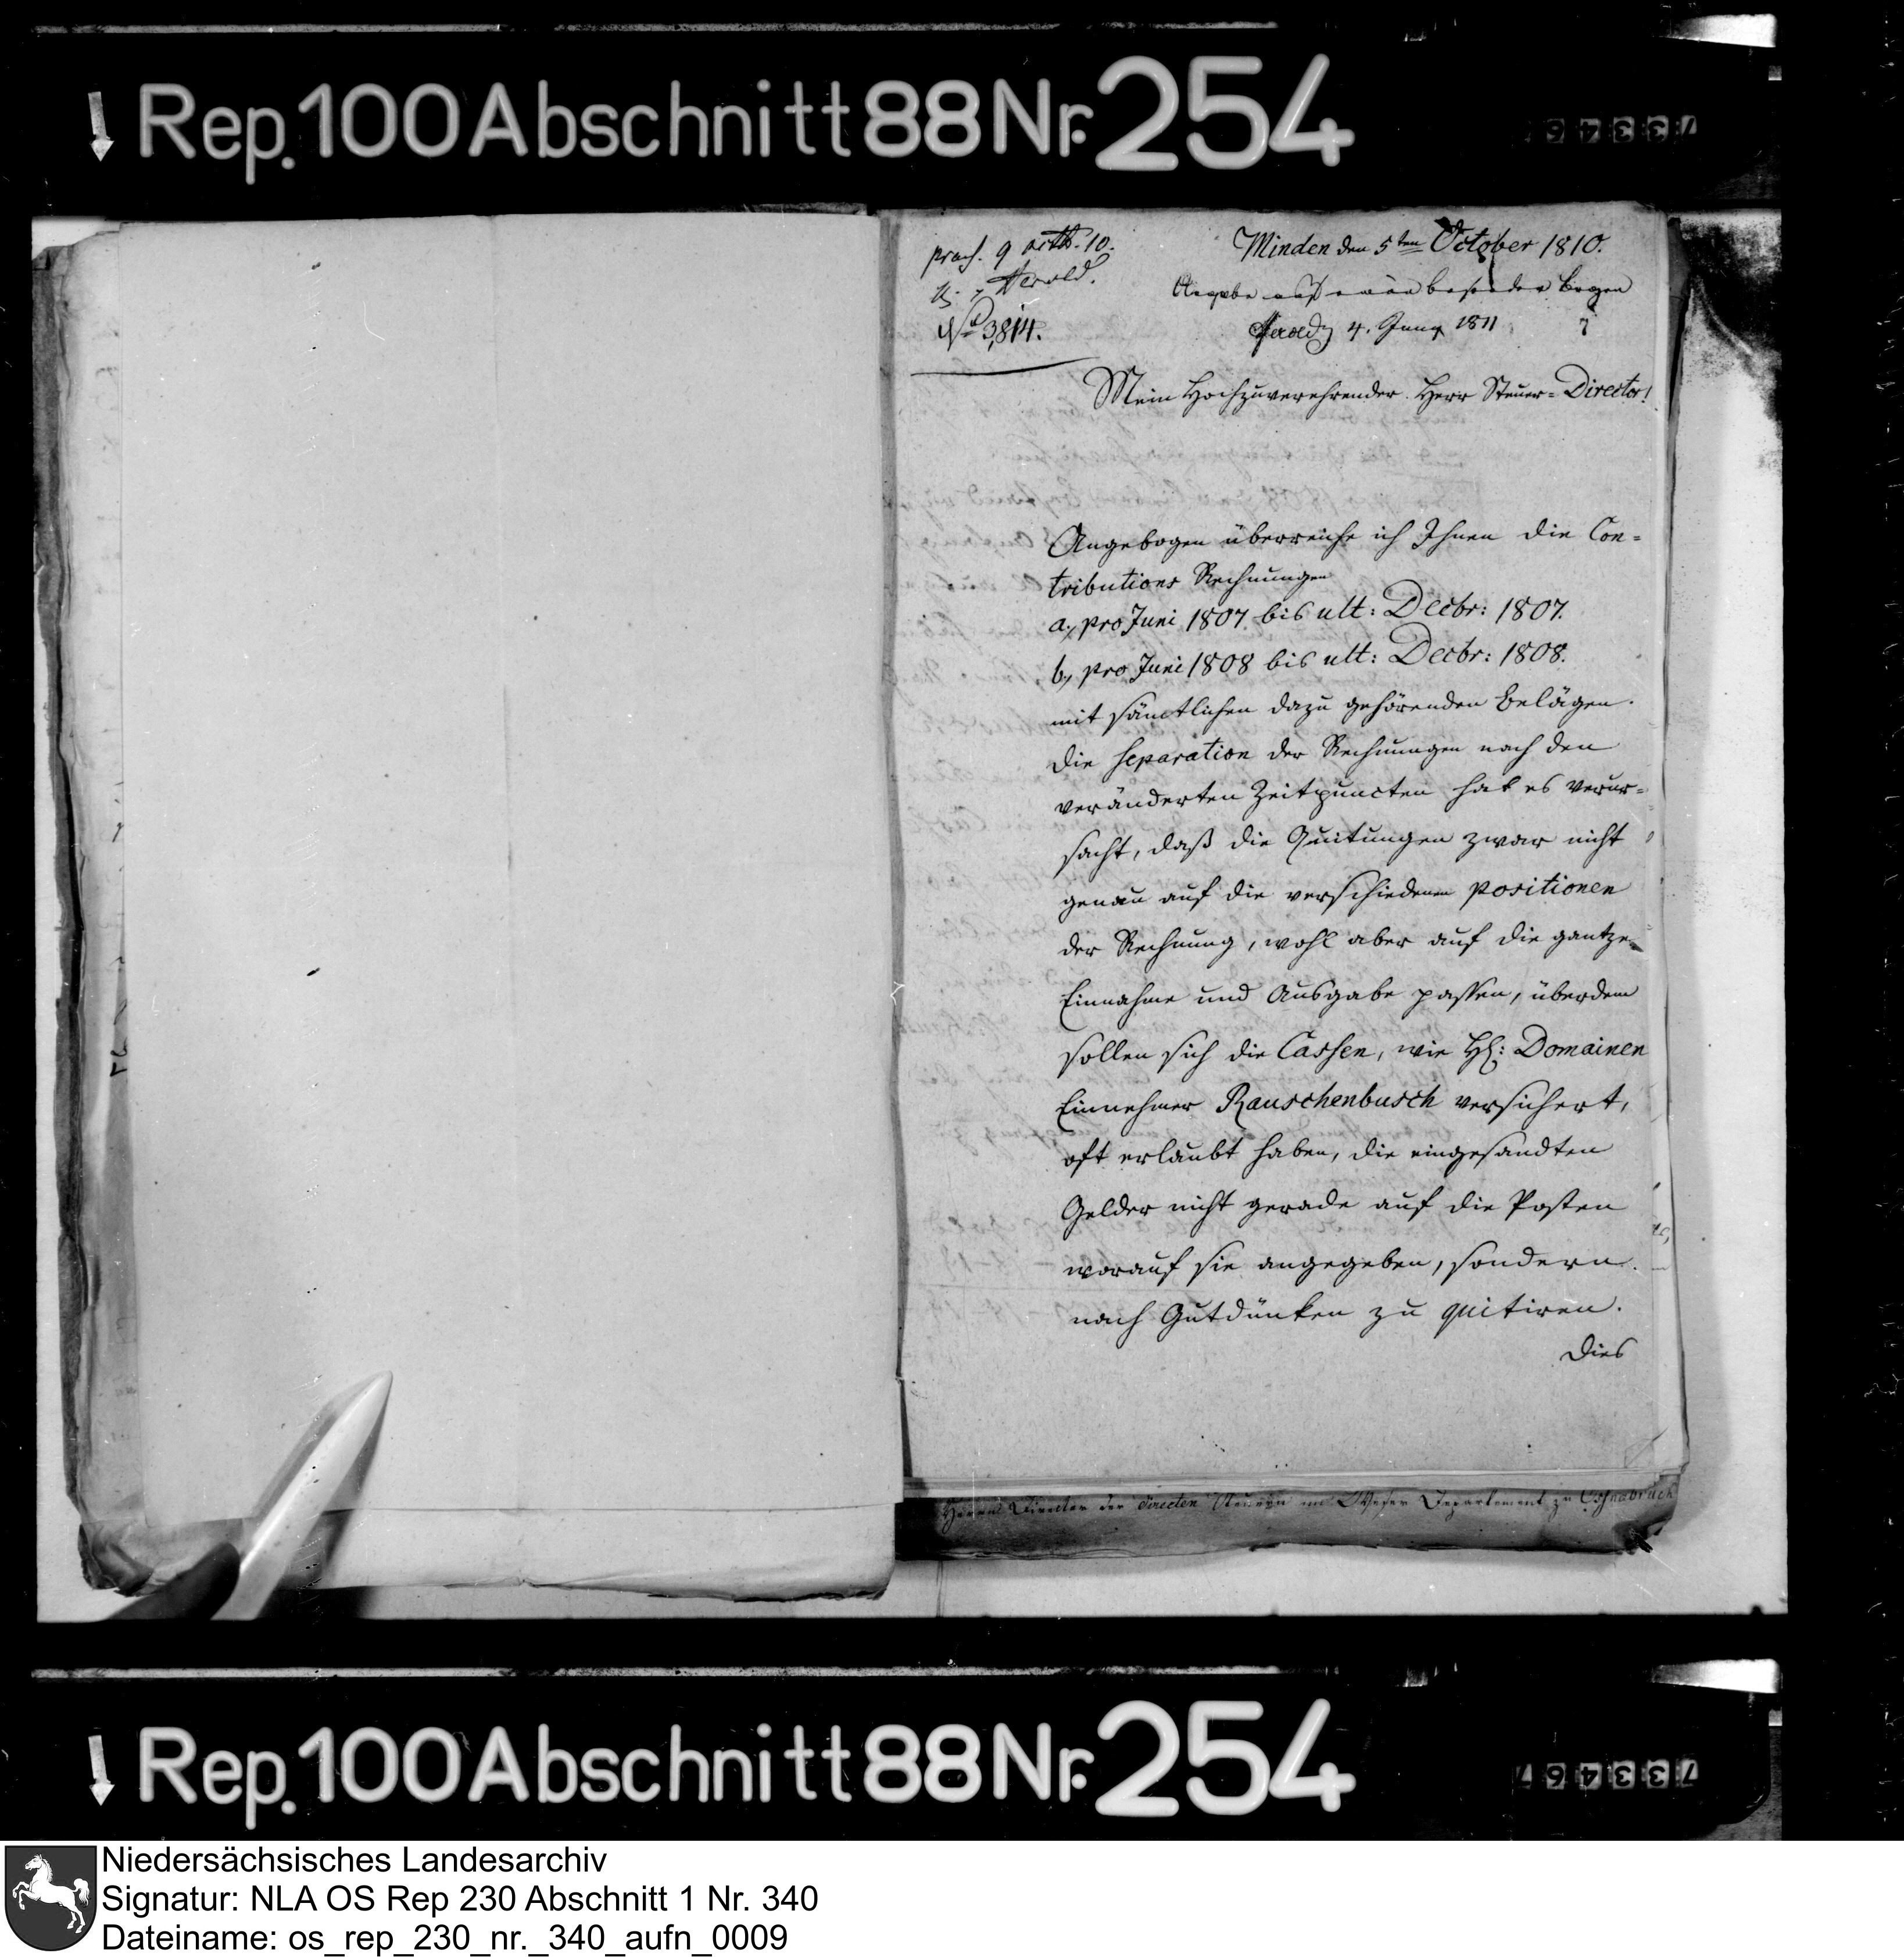 Rep. 100 Abschnitt 88 Nr. 254
præs. 9 octb. 10.
Herold.
No 3,814.
Minden den 5ten October 1810.
4. Juny 1811
7
Mein Hochzuverehrender Herr Steuer-Director!
Angebogen überreiche ich Ihnen die Con-
tributions Rechnungen
a., pro Juni 1807 bis ult: Decbr: 1807.
b., pro Juni 1808 bis ult: Decbr: 1808.
mit sämtlichen dazu gehörenden Belägen.
Die Separation der Rechnungen nach den
veränderten Zeitpuncten hat es verur-
sacht, daß die Quitungen zwar nicht
genau auf die verschiedenen Positionen
der Rechnung, wohl aber auf die gantze
Einnahme und Ausgabe passen, überdem
sollen sich die Cassen, wie H: Domainen
Einnehmer Rauschenbusch versichert,
oft erlaubt haben, die eingesandten
Gelder nicht gerade auf die Posten
worauf sie angegeben, sondern
nach Gutdünken zu quitiren.
Dies
Herrn Director der directen Steuern im Weser Departement zu Osnabrück
Rep. 100 Abschnitt 88 Nr. 254
Niedersächsisches Landesarchiv
Signatur: NLA OS Rep 230 Abschnitt 1 Nr. 340
Dateiname: os_rep_230_nr._340_aufn_0009